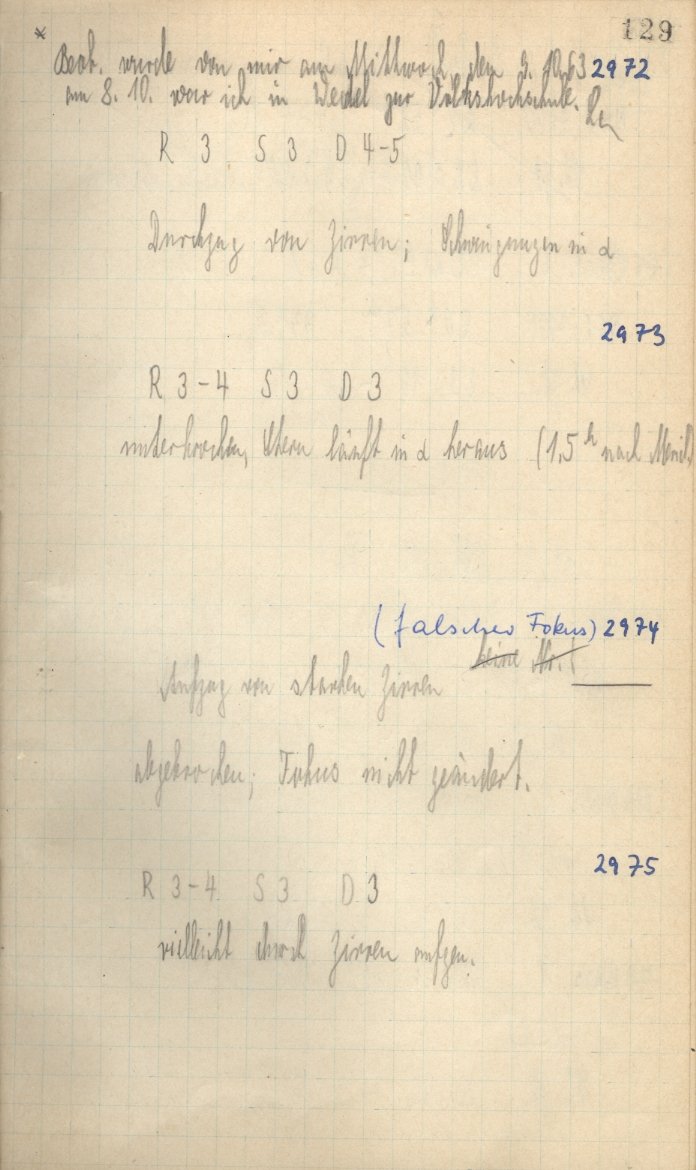 129
* Beob. wurde von mir am Mittwoch, den 9. 10. 63 2972
am 8. 10. war ich in Wedel zur Volkshochschule.
R 3 S 3 D 4-5
Durchzug von Zirren; Schwingungen in α
2973
R 3-4 S 3 D 3
unterbrochen, Stern läuft in α heraus (1,5ʰ nach
(falscher Fokus) 2974
keine Nr.!
Aufzug von starken Zirren
abgebrochen; Fokus nicht geändert.
2975
R 3-4 S 3 D 3
vielleicht durch Zirren aufgen.